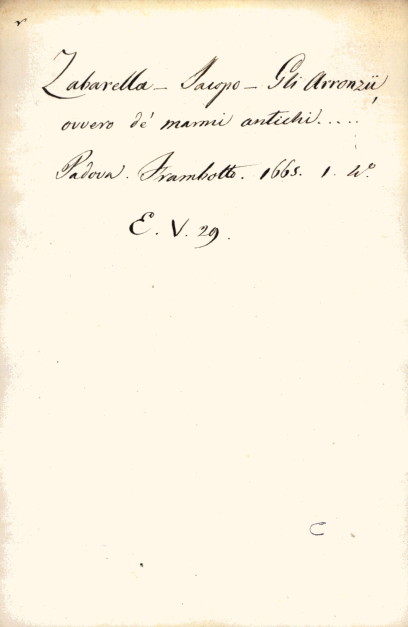 Zabarella - Jacopo - Gli Arronzii,
ovvero de' marmi antichi....
Padova. Frambotto. 1665. 1. 4.º
E. V. 29.
C